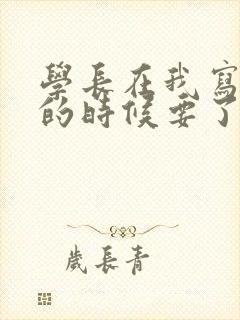 學長在我寫
的時候要了
歲長青